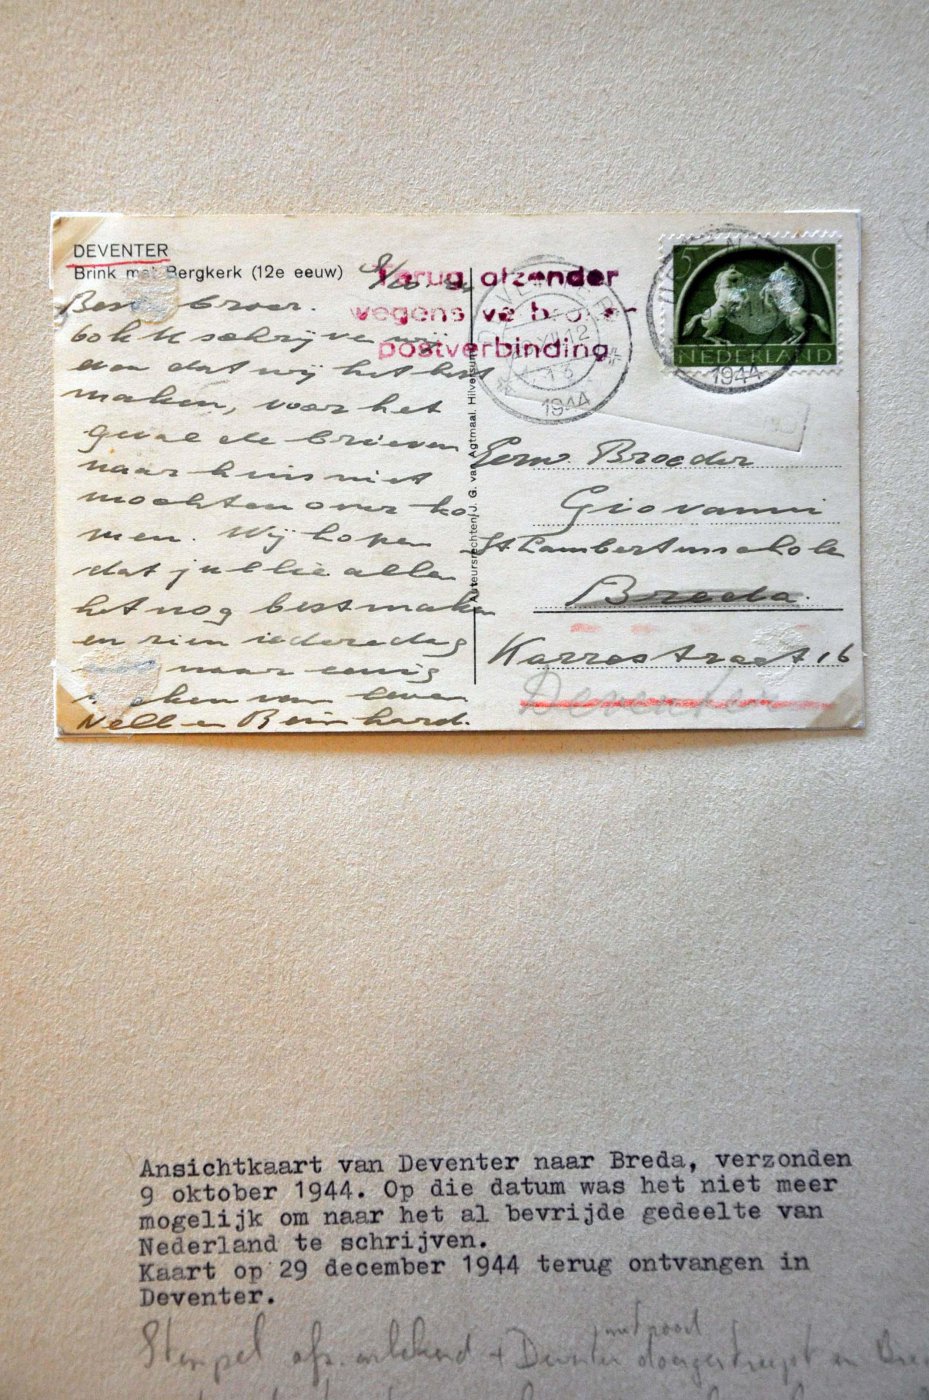 DEVENTER
Brink met Bergkerk (12e eeuw)
Terug afzender
wegens ve bro er-
postverbinding
DEVENTER
12
13
1944
5 C
NEDERLAND
1944
Auteursrechten J. G. van Agtmaal. Hilversum
Beste broer.
ook K schrijven wij
dan dat wij het best
maken, voor het
geval de brieven
naar huis niet
mochten over ko
men. Wij hopen
dat jullie allen
het nog best maken
en zien iedere dag
naar eenig
teken van leven
Nell en Bernhard.
Eerw Broeder
Giovanni
St Lambertusschole
Breda.
Karrestraat 16
Deventer
Ansichtkaart van Deventer naar Breda, verzonden
9 oktober 1944. Op die datum was het niet meer
mogelijk om naar het al bevrijde gedeelte van
Nederland te schrijven.
Kaart op 29 december 1944 terug ontvangen in
Deventer.
Stempel afz. onbekend + Deventer